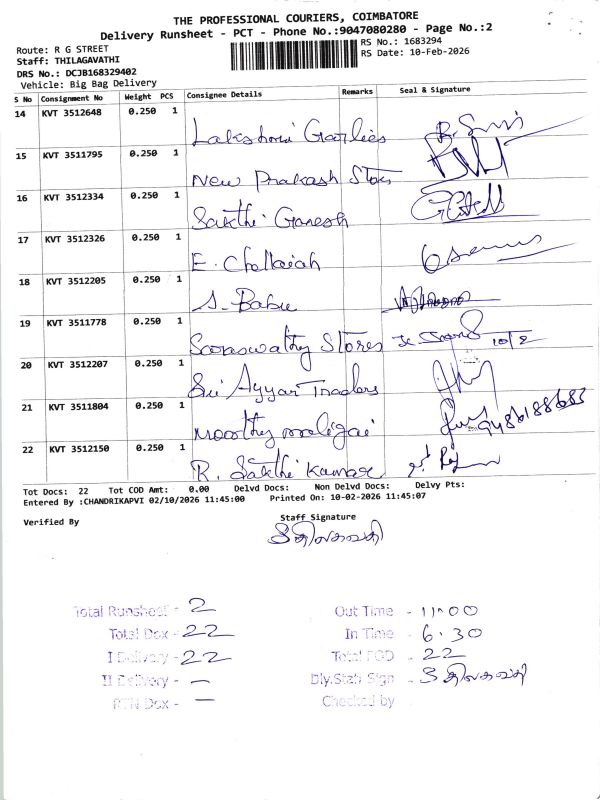 THE PROFESSIONAL COURIERS, COIMBATORE
Delivery Runsheet - PCT - Phone No.:9047080280 - Page No.:2
Route: R G STREET
RS No.: 1683294
Staff: THILAGAVATHI
RS Date: 10-Feb-2026
DRS No.: DCJB168329402
Vehicle: Big Bag Delivery
S No Consignment No Weight PCS Consignee Details Remarks Seal & Signature
14 KVT 3512648 0.250 1
Lakshmi
15 KVT 3511795 0.250 1
New Prakash Stores
16 KVT 3512334 0.250 1
Sakthi Ganesh
17 KVT 3512326 0.250 1
E. Chellaiah
18 KVT 3512205 0.250 1
S. Babu
19 KVT 3511778 0.250 1
Saraswathy Stores 10/2
20 KVT 3512207 0.250 1
Sri Ayyar Traders
21 KVT 3511804 0.250 1
Moorthy maligai
22 KVT 3512150 0.250 1
R. Sakthi Kumar
Tot Docs: 22 Tot COD Amt: 0.00 Delvd Docs: Non Delvd Docs: Delvy Pts:
Entered By :CHANDRIKAPVI 02/10/2026 11:45:00 Printed On: 10-02-2026 11:45:07
Verified By
Staff Signature
திலகவதி
Total Runsheet - 2
Out Time - 11:00
Total Dox - 22
In Time - 6.30
I Delivery - 22
Total POD - 22
II Delivery - —
Dly.Staff Sign - திலகவதி
RTN Dox - —
Checked by